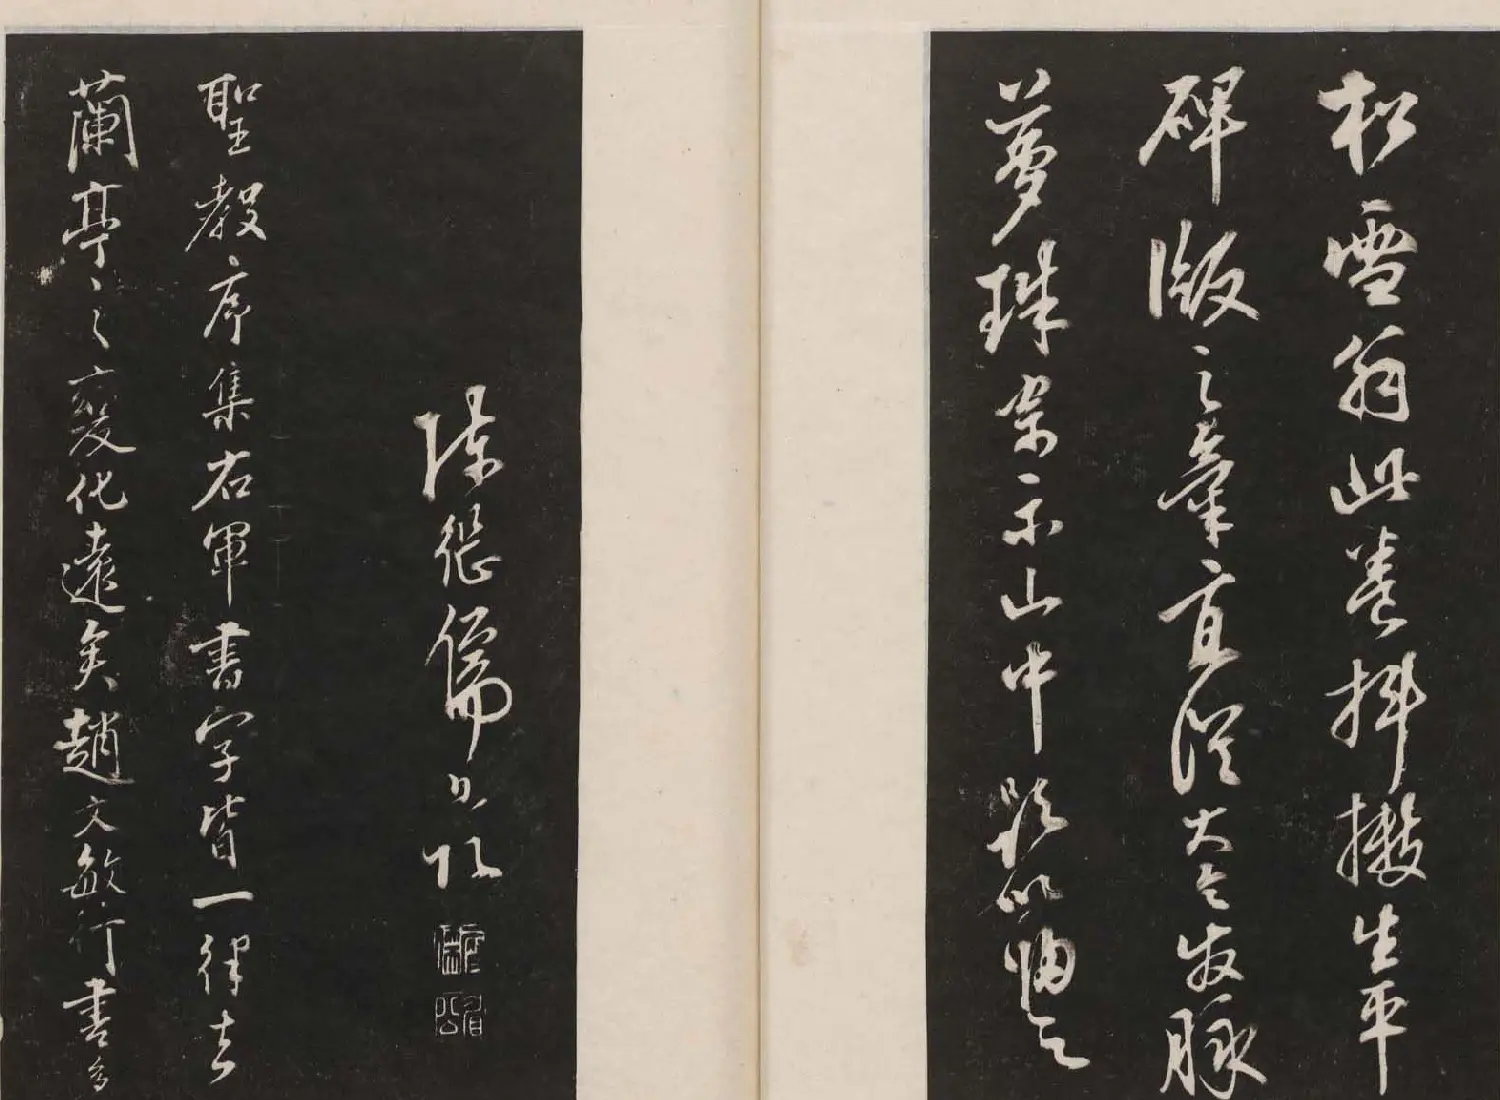 松雪翁此卷抖擻生平
碑版之直從大令发脉
夢珠索示山中題以歸之
陳継儒
聖教序集右軍書字皆一律去
蘭亭之變化遠矣趙文敏行書多